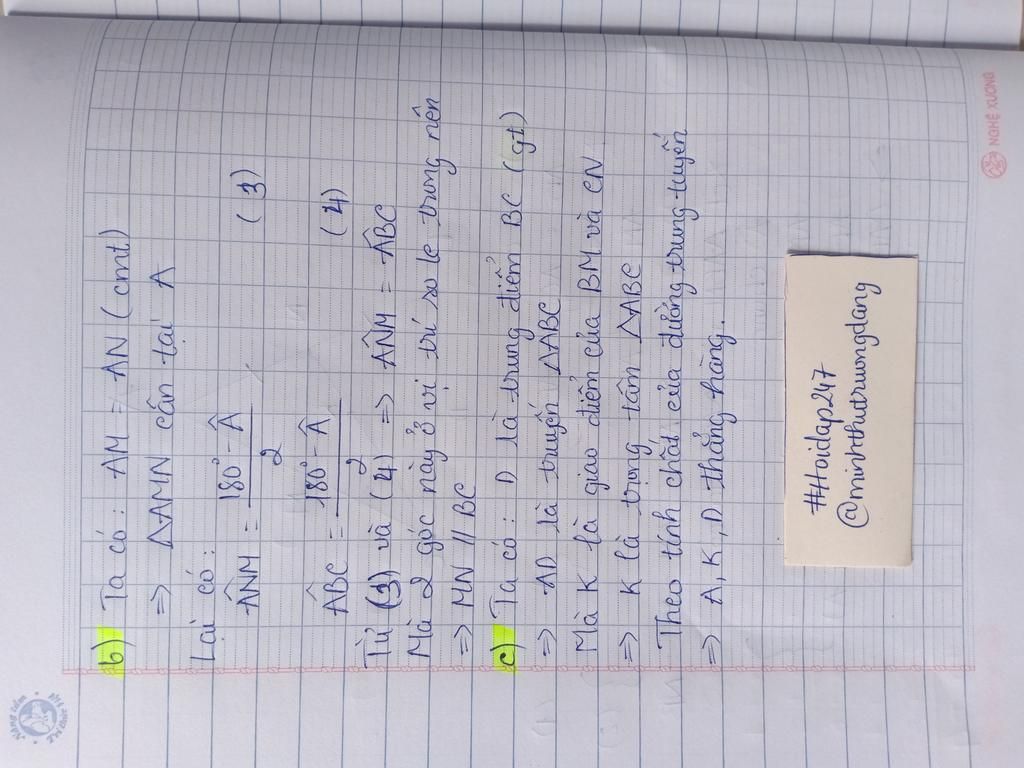 b) Ta có: AM = AN (cmt)
=> △AMN cân tại A
Lại có:
A^NM = 180° - Â / 2 (3)
A^BC = 180° - Â / 2 (4)
Từ (3) và (4) => A^NM = A^BC
Mà 2 góc này ở vị trí so le trong nên
=> MN // BC
c) Ta có: D là trung điểm BC (gt)
=> AD là truyến △ABC
Mà K là giao điểm của BM và CN
=> K là trọng tâm △ABC
Theo tính chất của đường trung tuyến
=> A, K, D thẳng hàng.
#Hoidap247
@minhthutruongdang
NGHỆ XƯƠNG